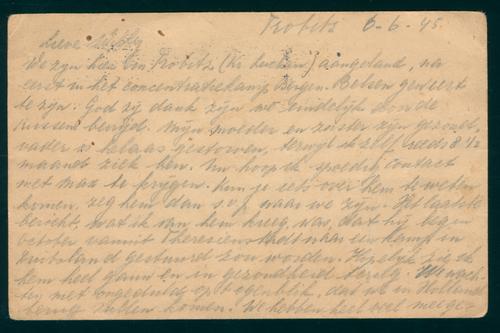 Trobitz 6-6-45.
Lieve
We zijn hier in Trobitz (Kr. Luckau) aangeland, na
eerst in het concentratiekamp Bergen-Belsen geweest
te zijn. God zij dank zijn we eindelijk door de
Russen bevrijd. Mijn moeder en zuster zijn gezond,
vader is helaas gestorven, terwijl ik zelf reeds 8 1/2
maand ziek ben. Nu hoop ik spoedig contact
met Max te krijgen. Kun je iets over hem te weten
komen, zeg hem dan s.v.p. waar we zijn. Het laatste
bericht, wat ik van hem kreeg, was, dat hij begin
october vanuit Theresienstadt naar een kamp in
Duitsland gestuurd zou worden. Hopelijk zie ik
hem heel gauw en in gezondheid terug. We wach-
ten met ongeduld op het ogenblik, dat we in Holland
terug zullen komen. We hebben heel veel meege-